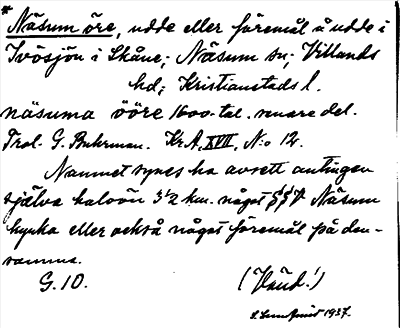 * Näsum öre, udde eller föremål å udde i
Ivösjön i Skåne; Näsum sn; Villands
hd; Kristianstads l.
näsuma ööre 1600-tal. senare del.
Trol. G. Buhrman. Kr.A, XVII, N:o 12.
Namnet synes ha avsett antingen
själva halvön 3½ km. något Näsum
kyrka eller också något föremål på den-
samma.
G. 10. (Vänd!)
1937.